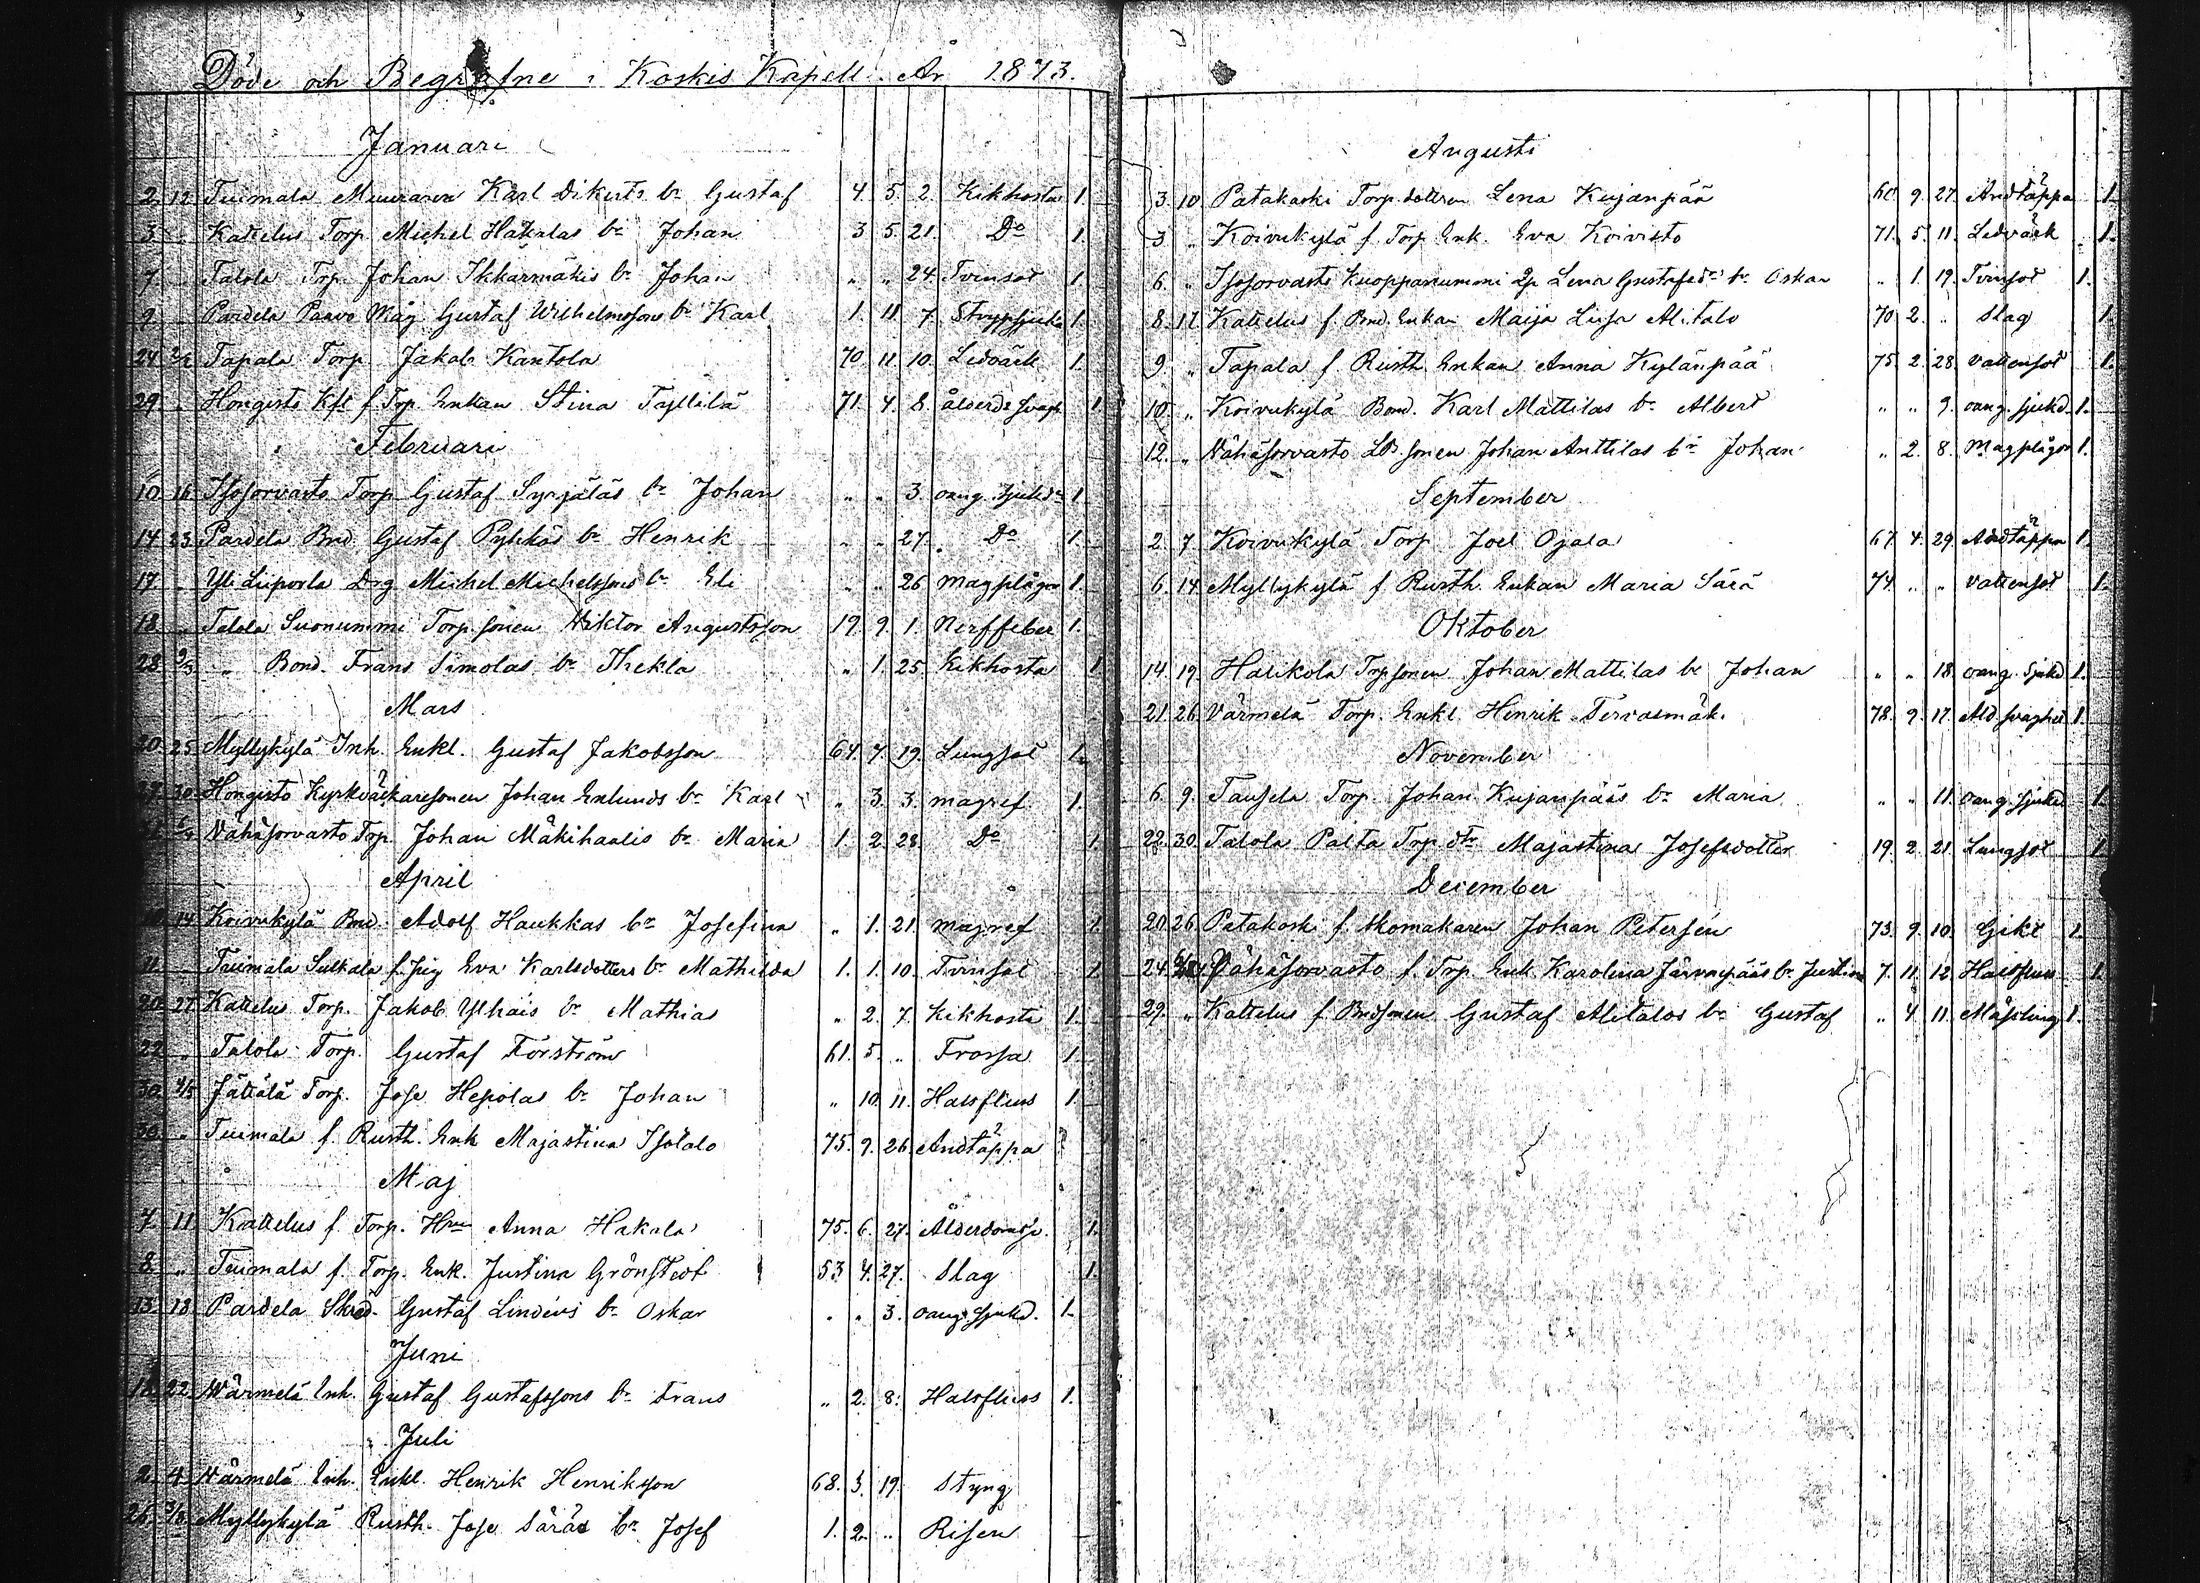 Döde och Begrafne i Koskis Kapell År 1873.
Januari
2. 12 Tuimala Muuraren Karl Dikerts bn Gustaf 4. 5. 2. Kikhosta 1.
3. „ Kattelus Torp. Michel Hakalas bn Johan 3 5. 21. Do 1.
7. „ Talola Trp. Johan Ikkarmäkis bn Johan „ „ 24. Tvinsot 1.
9. „ Pardela Paavo Måg Gustaf Wilhelmssons bn Karl 1. 11 7. Strypsjuka 1.
24 2/2 Tapala Torp. Jakob Kantola 70. 11. 10. Ledvärk 1.
29. „ Hongisto Kfl f. Trp. Enkan Stina 71. 4. 8. ålderds svagh 1
Februari
10 16 Isosorvasto Torp. Gustaf Syrjäläs bn Johan „ „ 3. oang. sjukd. 1
14 23 Pardela Bnd. Gustaf Pyhkäs bn Henrik „ „ 27. Do 1.
17. „ Yli Liipola Drg Michel Michelssons bn Eli „ „ 26 magplågor 1.
18. „ Talola Suonummi Torp. sonen Wiktor Augustsson 19. 9. 1. Nerffeber 1.
28 9/3 „ Bond. Frans Simolas bn Thekla „ 1. 25 Kikhosta 1
Mars
20 25 Myllykylä Inh. Enkl. Gustaf Jakobsson 64. 7. 19. Lungsot 1.
27. 30 Hongisto Kyrkväktaresonen Johan Enlunds bn Karl „ 3. 3. magref. 1.
Vähäsorvasto Trp. Johan Mäkihaalis bn Maria 1. 2. 28. Do 1.
April
14 Koivukylä Bnd. Adolf Haukkas bn Josefina „ 1. 21. magref 1.
11. „ Tuimala Sulkala f. Pig Eva Karlsdotters bn Mathilda 1. 1. 10. Tvinsot 1
20. 27 Kattelus Torp. Jakob Ylhäis bn Mathias „ 2. 7. Kikhosta 1.
22 „ Talola Torp. Gustaf Forström 61. 5. „ Frossa 1.
30. 4/5 Jättälä Torp. Jose Hepolas bn Johan „ 10. 11. Halsfluss 1.
30. „ Tuimala f. Rusth. Enk Majastina Isotalo 75. 9. 26. Andtäppa
Maj
7. 11 Kattelus f. Torp. Hru Anna Hakala 75. 6. 27. Ålderdomssv. 1.
8. „ Tuimala f. Torp. Enk. Justina Grönstedt 53 4. 27. Slag 1.
13. 18 Pardela Skrd. Gustaf Lindéns bn Oskar „ „ 3. oang. sjukd. 1.
Juni
18 22 Wärmelä Inh. Gustaf Gustafssons bn Frans „ 2. 8. Halsfluss 1.
Juli
2. 4. Wärmelä Inh. Enkl. Henrik Henriksson 68. 3. 19. Styng
26. 3/8 Myllykylä Rusth. Jose Säräs bn Josef 1. 2. „ Risen
Augusti
3. 10 Patakoski Torp. dottren Lena Kujanpää 60. 9. 27. Andtäppa 1.
3 „ Koivukylä f. Torp. Enk. Eva Koivisto 71. 5. 11. Ledvärk 1.
6. „ Isosorvasto Kuoppanummi Qp Lena Gustafsdrs bn Oskar „ 1. 19. Tvinsot 1.
8. 17. Kattelus f. Bnd. Enkan Maija Lisa Alitalo 70. 2. „ Slag 1.
9. „ Tapala f. Rusth. Enkan Anna Kylänpää 75. 2. 28. vattensot 1.
10. „ Koivukylä Bond. Karl Mattilas bn Albert „ „ 9. oang. sjukd. 1.
12. „ Vähäsorvasto Ldb. sonen Johan Anttilas bn Johan „ 2. 8. Magplågor 1.
September
2. 7 Koivukylä Torp. Joel Ojala 67. 4. 29. Andtäppa 1.
6. 14 Myllykylä f. Rusth. Enkan Maria Särä 74. „ „ vattensot 1.
Oktober
14 19. Halikola Trpsonen Johan Mattilas bn Johan „ „ 18. oang. sjukd 1.
21. 26 Värmelä Torp. Enkl. Henrik Tervasmäk. 78. 9. 17. Ald svaghet 1.
November
6. 9. Tausela Torp. Johan Kujanpääs bn Maria „ „ 11. oang. sjukd. 1.
22. 30. Talola Palta Trp. dtr Majastina Josefsdotter 19. 2. 21. Lungsot 1
December
20. 26 Patakoski f. Skomakaren Johan Petersén 73. 9. 10. Gikt 1.
24. Vähäsorvasto f. Trp. Enk. Karolina Järvenpääs bn Justina 7. 11. 12. Halsfluss 1.
29. „ Kattelus f. Bndsonen Gustaf Alitalos bn Gustaf „ 4. 11. Mässling 1.